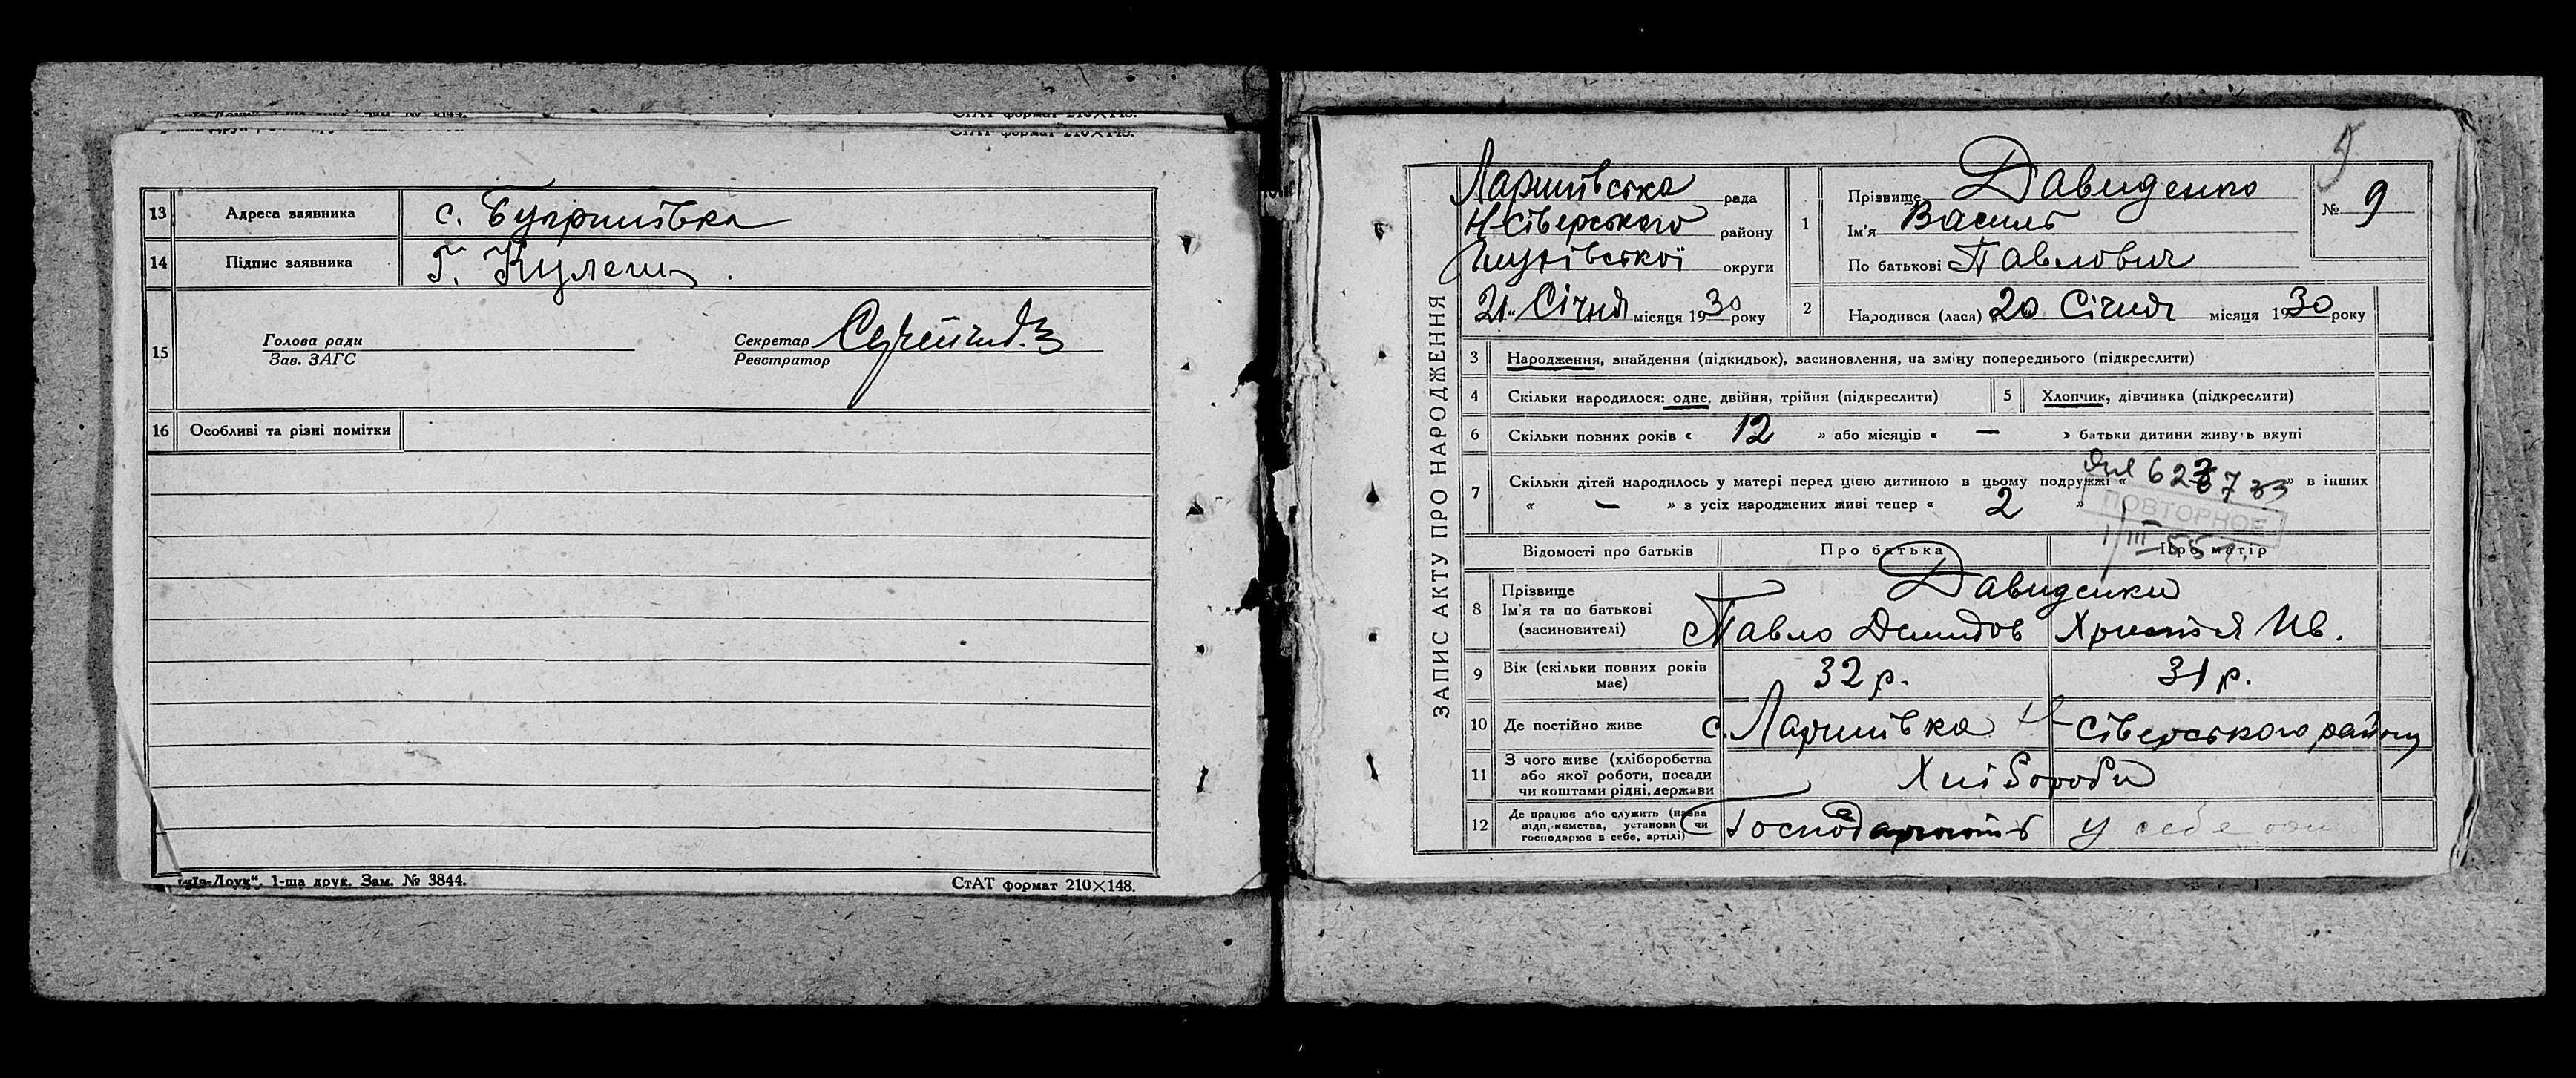 СтАТ формат 210×148.
13 Адреса заявника с. Бугринівка
14 Підпис заявника Г. Кулеш
15 Голова ради
Зав. ЗАГС
Секретар
Реєстратор
16 Особливі та різні помітки
1-ша друк. Зам. № 3844.
СтАТ формат 210×148.
ЗАПИС АКТУ ПРО НАРОДЖЕННЯ
Ларинівська рада
Н-Сіверського району
Глухівської округи
21 Січня місяця 1930 року
1 Прізвище Давиденко
Ім'я Василь
По батькові Павлович
№ 9
2 Народився (лася) 20 Січня місяця 1930 року
3 Народження, знайдення (підкидьок), засиновлення, на зміну попереднього (підкреслити)
4 Скільки народилося: одне, двійня, трійня (підкреслити)
5 Хлопчик, дівчинка (підкреслити)
6 Скільки повних років « 12 » або місяців « — » батьки дитини живуть вкупі
7 Скільки дітей народилось у матері перед цією дитиною в цьому подружжі « » в інших
« — » з усіх народжених живі тепер « 2 »
ПОВТОРНОЕ
Відомості про батьків Про батька Про матір
8 Прізвище
Ім'я та по батькові
(засиновителі)
Давиденки
Павло Демидов Христя Ив.
9 Вік (скільки повних років має) 32 р. 31 р.
10 Де постійно живе с. Ларинівка Н-Сіверського району
11 З чого живе (хліборобства
або якої роботи, посади
чи коштами рідні, держави
Хлібороби
12 Де працює або служить (назва
підприємства, установи чи
господарює в себе, артілі)
Господарюють у себе